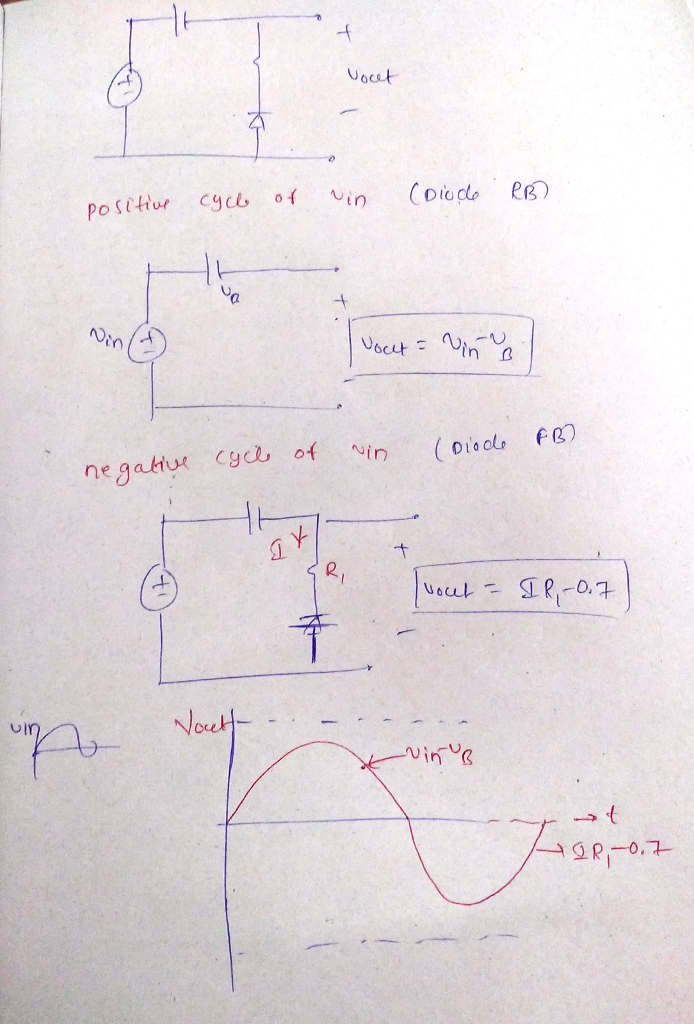 +
+
Vout
-
positive cycle of vin (Diode RB)
VB
vin
+
+
Vout = vin - vB
-
negative cycle of vin (Diode FB)
I
R1
+
+
Vout = IR1 - 0.7
-
vin
Vout
vin - vB
→ t
→ IR1 - 0.7